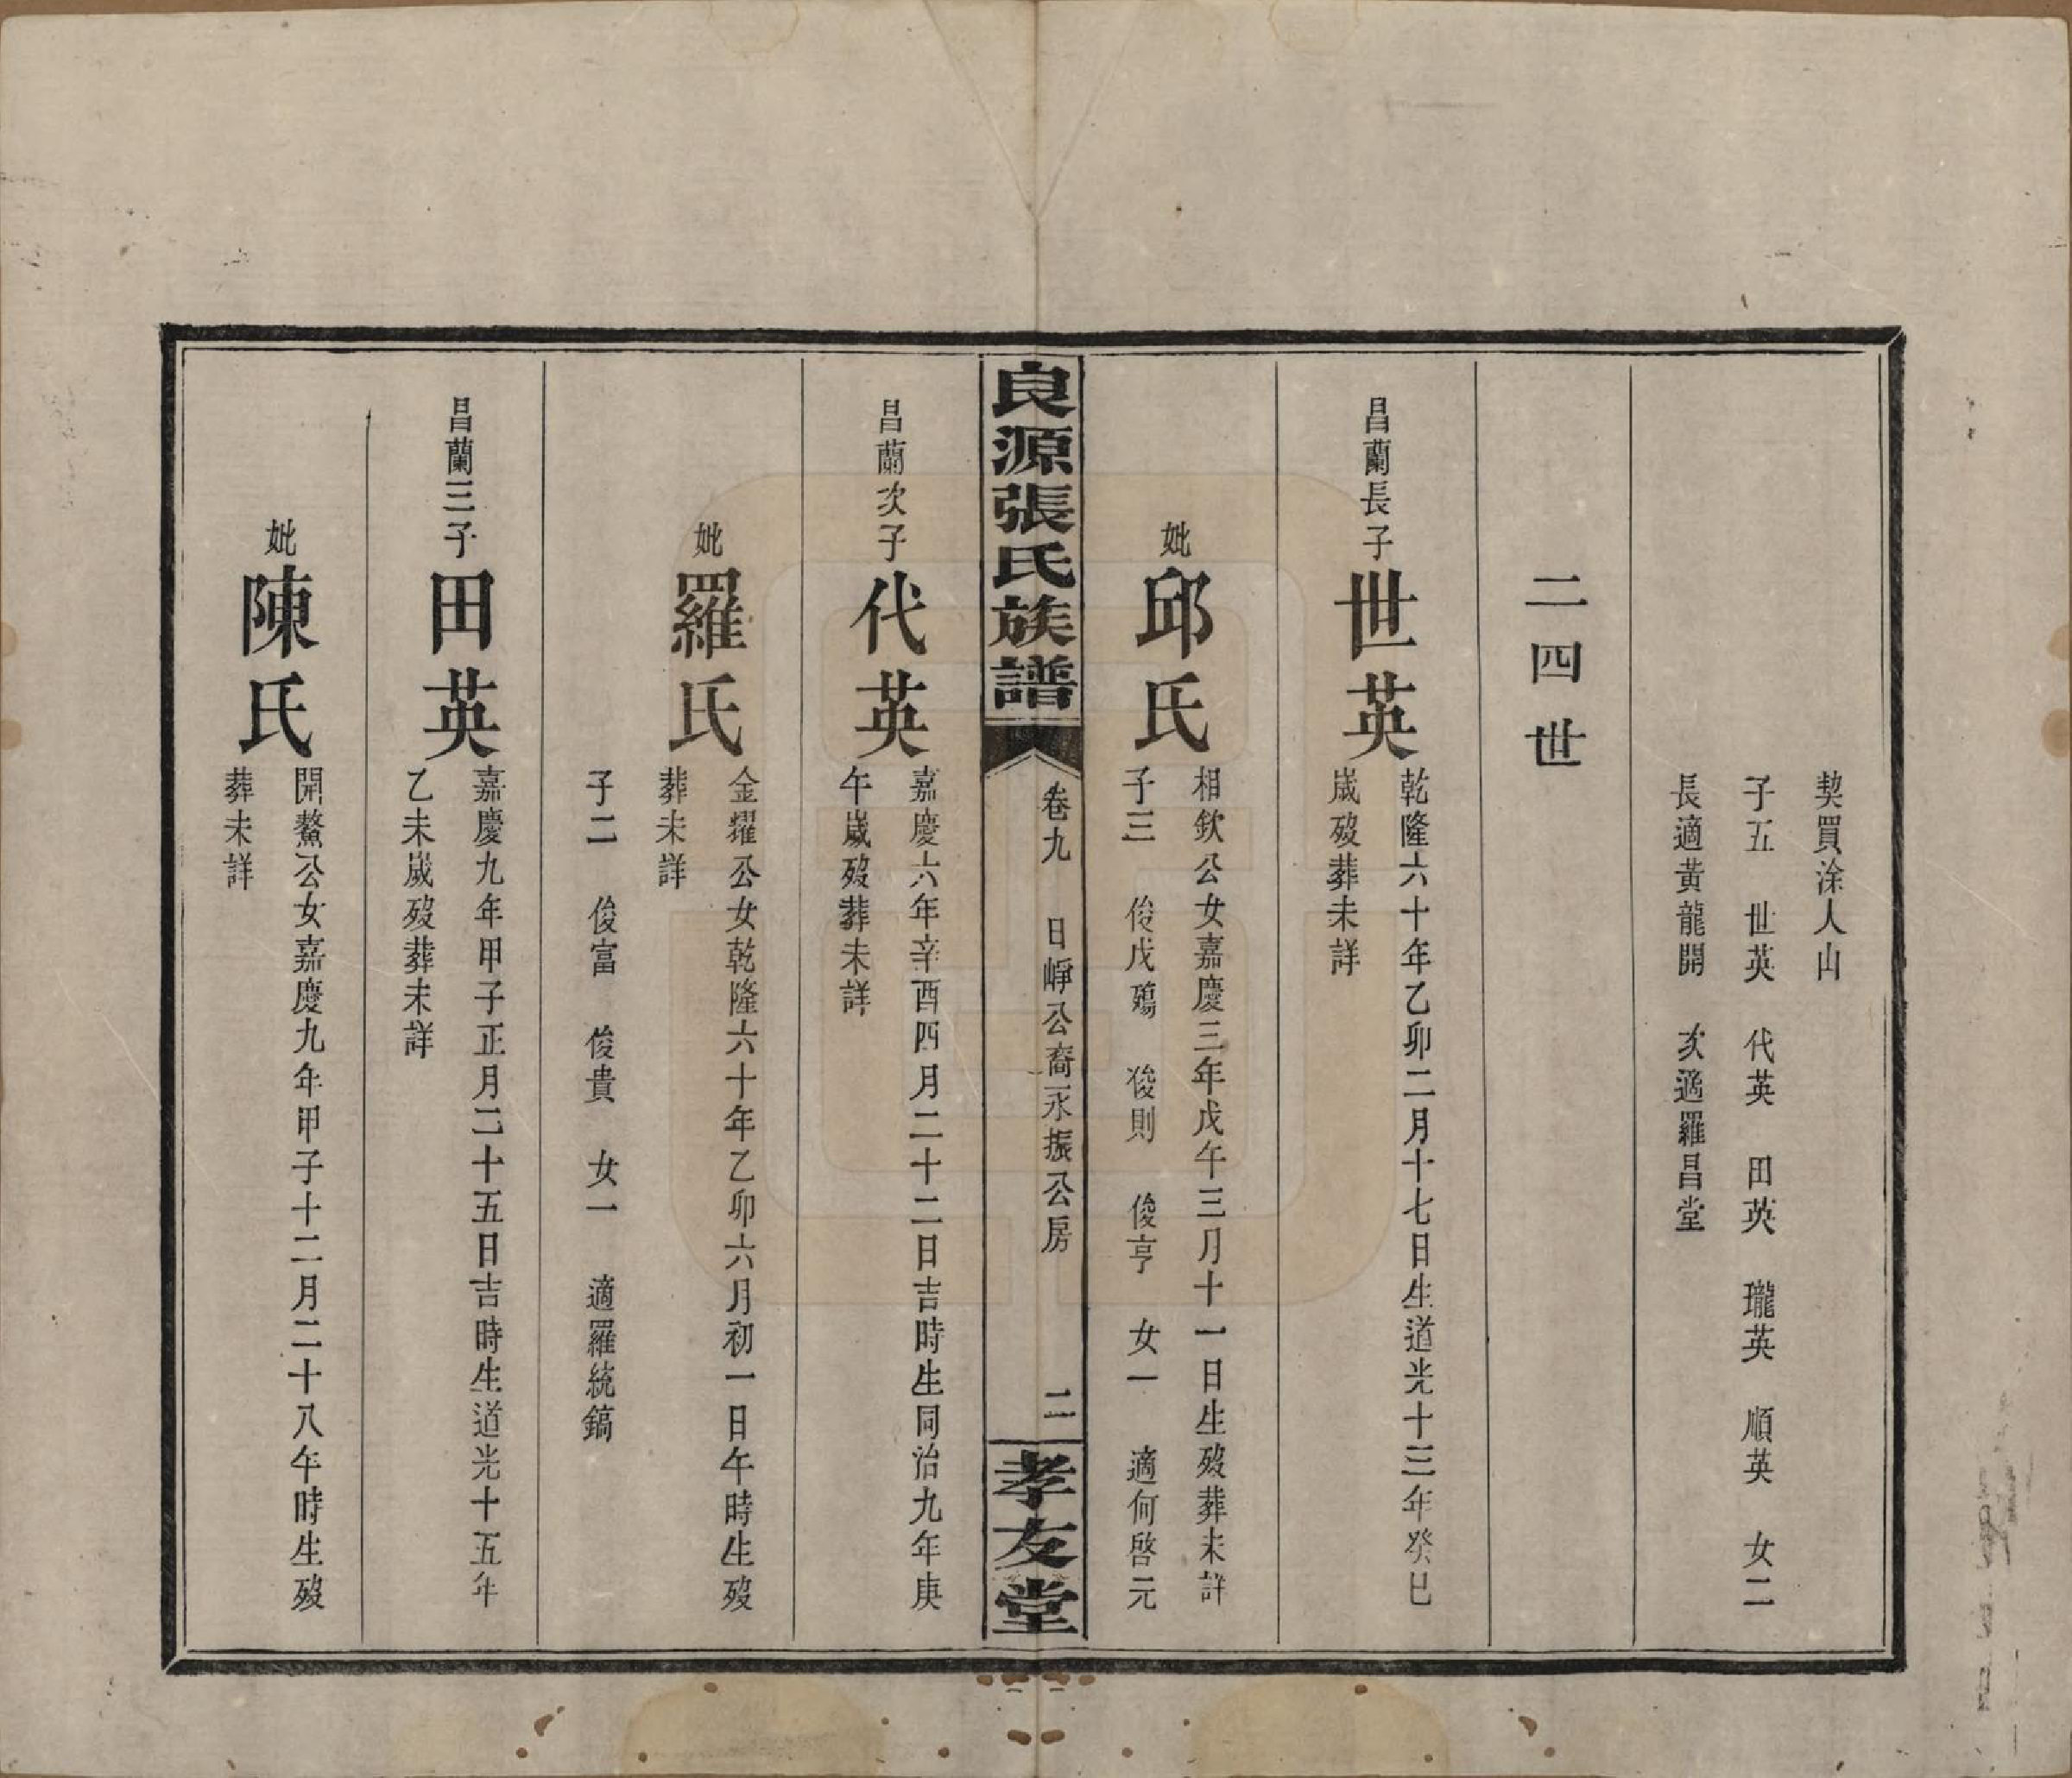 契買涂人山
子五　世英　代英　田英　瓏英　順英　女二
長適黃龍開　次適羅昌堂
二四世
昌蘭長子世英
乾隆六十年乙卯二月十七日生道光十三年癸巳
歲歿葬未詳
妣邱氏
相欽公女嘉慶三年戊午三月十一日生歿葬未詳
子三　俊戊殤　俊則　俊亨　女一　適何啓元
良源張氏族譜
卷九　日崢公裔永振公房　二
孝友堂
昌蘭次子代英
嘉慶六年辛酉四月二十二日吉時生同治九年庚
午歲歿葬未詳
妣羅氏
金耀公女乾隆六十年乙卯六月初一日午時生歿
葬未詳
子二　俊富　俊貴　女一　適羅統鎬
昌蘭三子田英
嘉慶九年甲子正月二十五日吉時生道光十五年
乙未歲歿葬未詳
妣陳氏
開鰲公女嘉慶九年甲子十二月二十八午時生歿
葬未詳